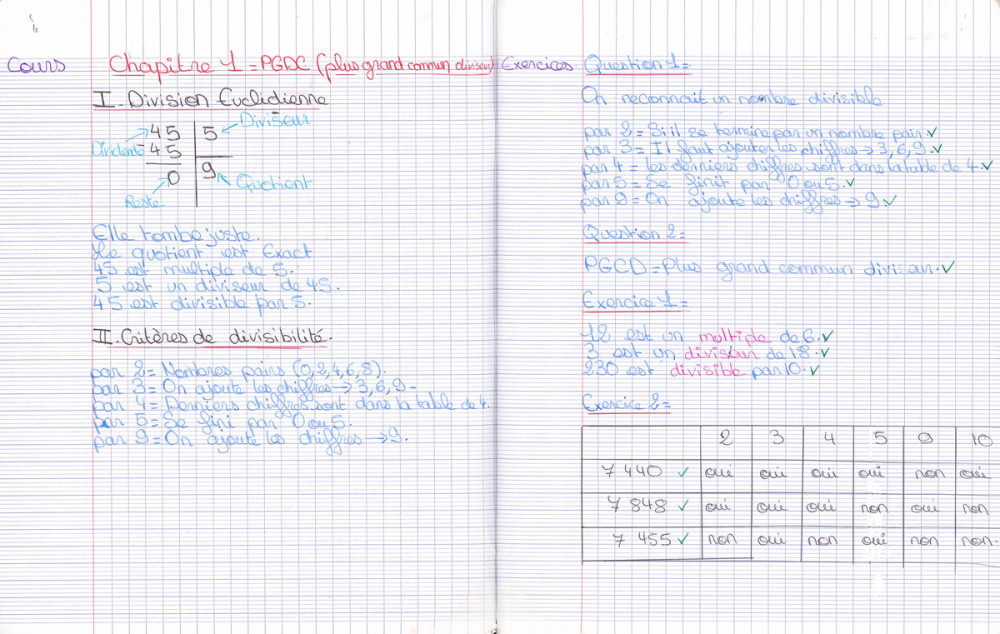 Cours
Chapitre 1 = PGDC (plus grand commun diviseur)
I. Division Euclidienne
45 5 Diviseur
Dividende 45
0 9 Quotient
Reste
Elle tombe juste.
Le quotient est Exact
45 est multiple de 5.
5 est un diviseur de 45.
45 est divisible par 5.
II. Critères de divisibilité.
par 2 = Nombres pairs (0,2,4,6,8).
par 3 = On ajoute les chiffres → 3,6,9 -
par 4 = Derniers chiffres sont dans la table de 4.
par 5 = Se fini par 0 ou 5.
par 9 = On ajoute les chiffres → 9.
Exercices
Question 1 =
On reconnait un nombre divisible
par 2 = Si il se termine par un nombre pair ✓
par 3 = Il faut ajouter les chiffres → 3,6,9. ✓
par 4 = les derniers chiffres sont dans la table de 4. ✓
par 5 = Se finit par 0 ou 5. ✓
par 9 = On ajoute les chiffres → 9. ✓
Question 2 =
PGCD = Plus grand commun diviseur. ✓
Exercice 1 =
12 est un multiple de 6. ✓
3 est un diviseur de 18. ✓
230 est divisible par 10. ✓
Exercice 2 =
2 3 4 5 9 10
7 440 ✓ oui oui oui oui non oui
7 848 ✓ oui oui oui non oui non
7 455 ✓ non oui non oui non non.